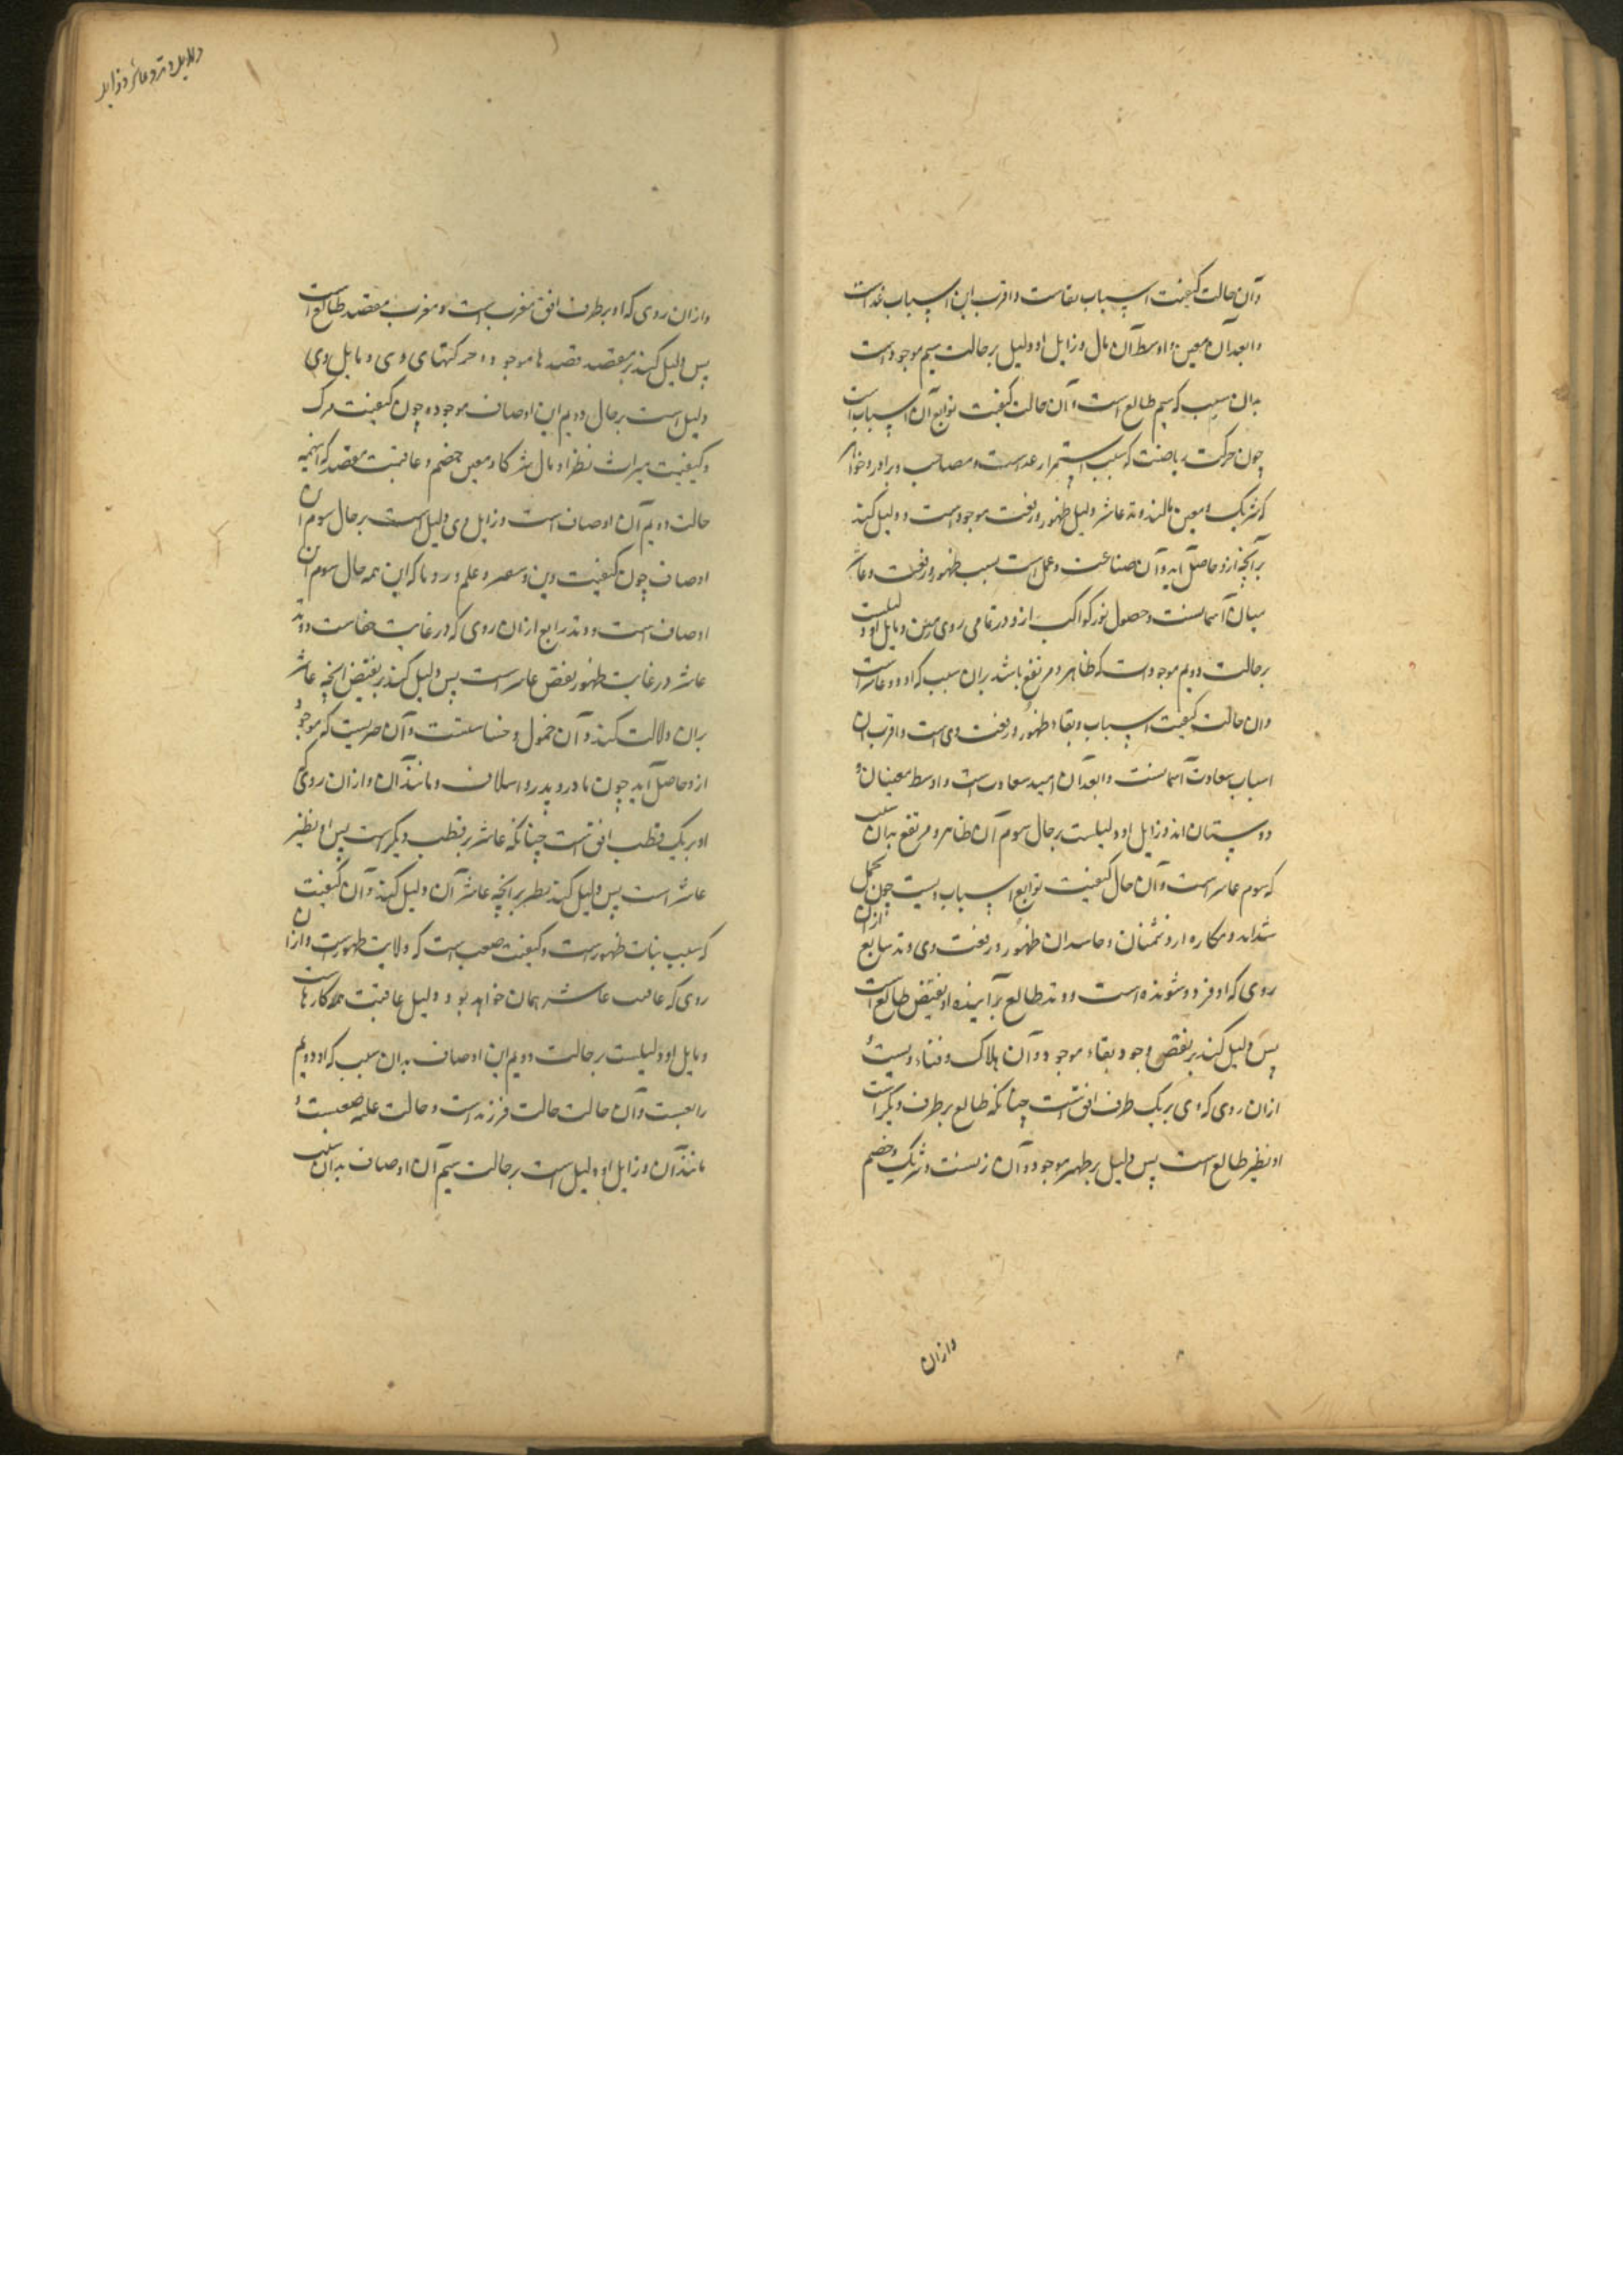 وآن حالت کیفیت اسباب بقاست واقرب این اسباب غذاست
وابعد آن معین واوسط آن مال وزایل او دلیل برحالت سیم موجود است
بدان سبب که سیم طالع است وآن حالت کیفیت توابع آن اسباب است
چون حرکت ریاضت که سبب استمرار عداست ومصاحب وبرادر وخواهر
که شریک ومعین مالند ووتد عاشر دلیل ظهور ورفعت موجود است ودلیل کند
برآنچه ازو حاصل آید وآن صناعت وعمل است بسبب ظهور ورفعت وعاشر
میان آسمانست وحصول نور کواکب ازو در تمامی روی زمین ومایل او دلیلست
برحالت دویم موجود است که ظاهر ومرتفع باشد بدان سبب که او دو عاشر است
وآن حالت کیفیت اسباب وبقاء ظهور ورفعت وی است واقرب آن
اسباب سعادت آسمانست وابعد آن امید سعادتست واوسط معینان و
دوستان اند وزایل او دلیلست برحال سوم آن ظاهر ومرتفع بدان سبب
که سوم عاشر است وآن حال کیفیت توابع اسباب ویست چون تحمل
شداید ومکاره از دشمنان وحاسدان ظهور ورفعت وی ووتد سابع ازان
روی که او فرو شونده است ووتد طالع برآینده او نقیض طالع است
پس دلیل کند بر نقض وجود بقاء موجود وآن هلاک وفناء ویست و
ازان روی که وی بر یک طرف افق است چنانکه طالع بر طرف دیگر است
او نظیر طالع است پس دلیل بر ظهر موجود وآن زنست وشریک وخصم
وازان
دلایل وتد عاشر وزایل
وازان روی که او بر طرف افق مغرب است ومغرب مقصد طالع است
پس دلیل کند بر مقصد قصدها موجود وحرکتهای وی ومایل وی
دلیل است برحال دویم این اوصاف موجود وچون کیفیت مرگ
وکیفیت میراث نظر او مال شرکا ومعین خصم وعاقبت مقصد که اینهمه
حالت دویم آن اوصاف است وزایل وی دلیل است برحال سوم آن
اوصاف چون کیفیت دین وسفر وعلم ورویا که این همه حال سوم آن
اوصاف است ووتد رابع ازان روی که در غایت خفاست ووتد
عاشر در غایت ظهور نقض عاشر است پس دلیل کند بر نقیض آنچه عاشر
بران دلالت کند وآن خمول وخساستست وآن صریست که موجود
ازو حاصل آید چون مادر وپدر واسلاف ومانند آن وازان روی
او بر یک قطب افق است چنانکه عاشر بر قطب دیگر است پس او نظیر
عاشر است پس دلیل کند نظیر برآنچه عاشر آن دلیل کند وآن کیفیت
که سبب ثبات ظهور است وکیفیت صعب است که ولایت ظهور است وازان
روی که عاقبت عاشر همان خواهد بود دلیل عاقبت همه کارهاست
ومایل او دلیلست برحالت دویم این اوصاف بدان سبب که او دویم
رابعست وآن حالت حالت فرزند است وحالت غله ضیعست و
مانند آن وزایل او دلیل است برحالت سیم آن اوصاف بدان سبب